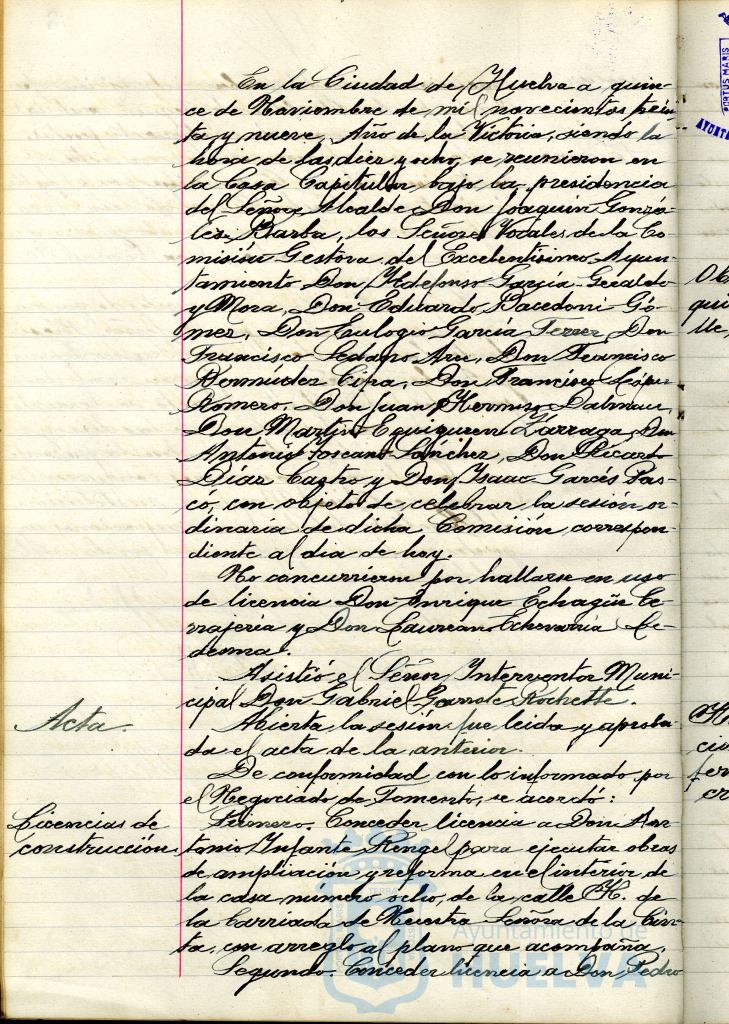 En la Ciudad de Huelva a quin-
ce de Noviembre de mil novecientos trein-
ta y nueve, Año de la Victoria, siendo la
hora de las diez y ocho, se reunieron en
la Casa Capitular bajo la presidencia
del Señor Alcalde Don Joaquin Gonzá-
lez Barba, los Señores Vocales de la Co-
misión Gestora del Excelentisimo Ayun-
tamiento Don Yldefonso García Geraldo
y Mora, Don Eduardo Bacedoni Gó-
mez, Don Eulogio García Ferrer, Don
Francisco Don Francisco
Bermúdez Don Francisco López
Romero, Don Juan Hermoso Dalmau,
Don Martin Eguiguren Don
Antonio Toscano Sánchez, Don Ricardo
Díaz Castro y Don Ysaac Garcés Pas-
có, con objeto de celebrar la sesión or-
dinaria de dicha Comisión correspon-
diente al dia de hoy.
No concurrieron por hallarse en uso
de licencia Don Enrique Echagüe Ce-
rrajería y Don Laureano Echevarría Le-
desma.
Asistió el Señor Ynterventor Muni-
cipal Don Gabriel Garrote Rochette.
Acta.
Abierta la sesión fue leida y aproba-
da el acta de la anterior.
De conformidad con lo informado por
el Negociado de Fomento, se acordó:
Licencias de
construcción
Primero. Conceder licencia a Don An-
tonio Ynfante Rengel para ejecutar obras
de ampliación y reforma en el interior de
la casa número ocho, de la calle H. de
la barriada de Nuestra Señora de la Cin-
ta, con arreglo al plano que acompaña.
Segundo. Conceder licencia a Don Pedro
Ayuntamiento de
HUELVA
PORTUS MARIS